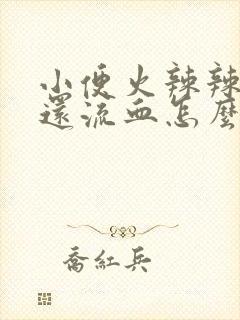 小便火辣辣
還流血怎麼
喬紅兵